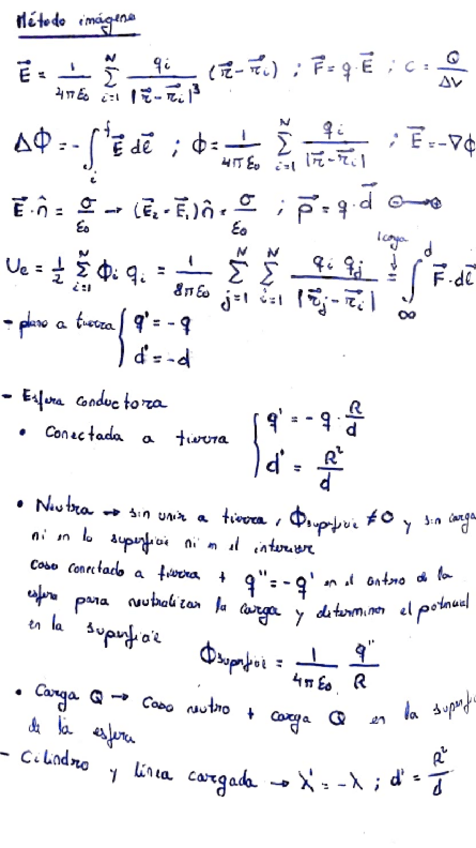 Método imágenes
E⃗ = 1/(4πε₀) Σ_{i=1}^{N} q_i/|r⃗-r⃗_i|³ (r⃗-r⃗_i) ; F⃗ = q·E⃗ ; C = Q/ΔV
ΔΦ = -∫_i^f E⃗ dℓ⃗ ; Φ = 1/(4πε₀) Σ_{i=1}^{N} q_i/|r⃗-r⃗_i| ; E⃗ = -∇Φ
E⃗·n̂ = σ/ε₀ → (E⃗₂-E⃗₁)n̂ = σ/ε₀ ; p⃗ = q·d⃗ ⊖→⊕
U_e = 1/2 Σ_{i=1}^{N} Φ_i q_i = 1/(8πε₀) Σ_{j=1}^{N} Σ_{i=1}^{N} q_i q_j/|r⃗_j-r⃗_i| = 1 carga ↓ ∫_∞^d F⃗·dℓ⃗
- plano a tierra { q' = -q
d' = -d
- Esfera conductora
• Conectada a tierra { q' = -q · R/d
d' = R²/d
• Neutra → sin unir a tierra, Φsuperficie ≠ 0 y sin carga
ni en la superficie ni en el interior
caso conectado a tierra + q'' = -q' en el centro de la
esfera para neutralizar la carga y determinar el potencial
en la superficie
Φsuperficie = 1/(4πε₀) q''/R
• Carga Q → Caso neutro + carga Q en la superfi
de la esfera
- Cilindro y línea cargada → λ' = -λ ; d' = R²/d